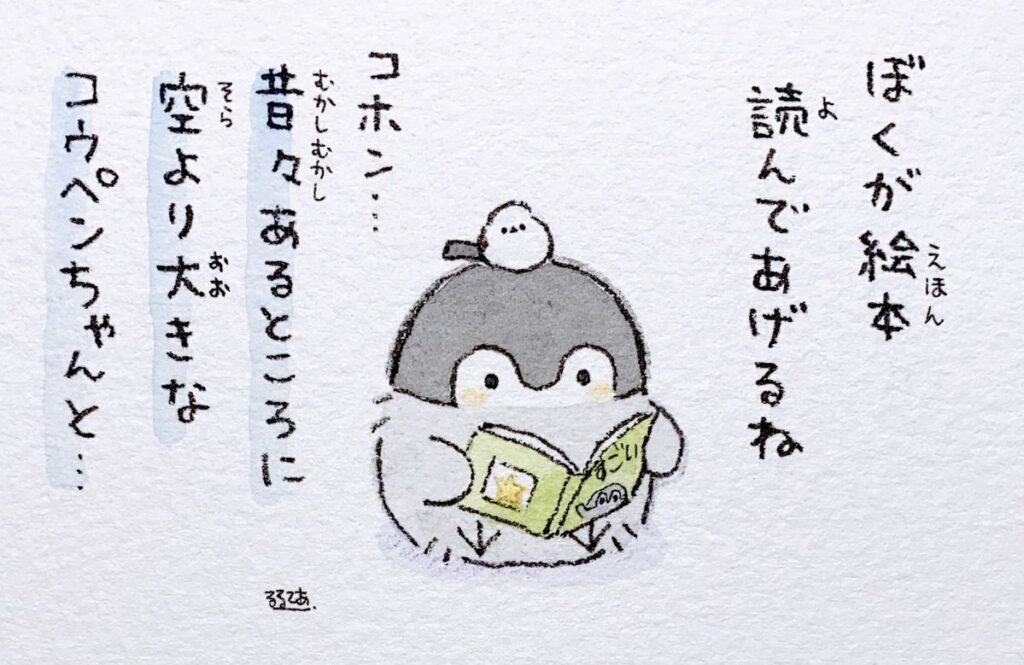 ぼくが絵本
えほん
読んであげるね
よ
コホン…
昔々あるところに
むかしむかし
空より大きな
そら
おお
コウペンちゃんと…
すごい
るるてあ.